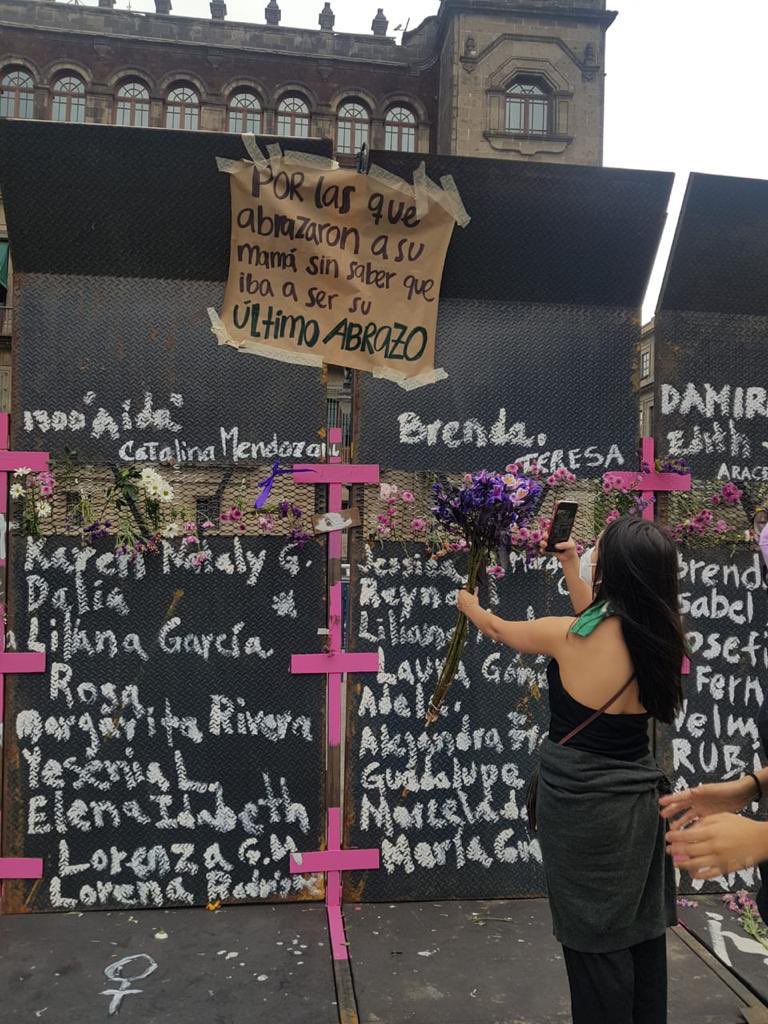 POR las que
abrazaron a su
mamá sin saber que
iba a ser su
ÚLTIMO ABRAZO
"Aida"
Catalina Mendoza
Brenda.
TERESA
DAMIR
Edith
ARACE
Karen Nataly G.
Dalia
Liliana García
Rosa
Margarita Rivera
Yesenia L.
Elena Izabeth
Lorenza G.M
Lorena Rodrig
Jessica
Reyna
Liliana
Laura Góm
Adel
Alejandra
Guadalupe
Marcela
María Gu
Brend
sabel
osefi
Fern
Velm
RUBÍ